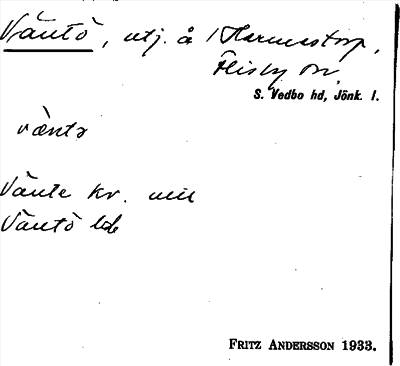 Väntö, utj. å 1 Harmestorp,
Flisby sn,
S. Vedbo hd, Jönk. l.
vænta
Vänte kr. mil
Väntö lb
FRITZ ANDERSSON 1933.